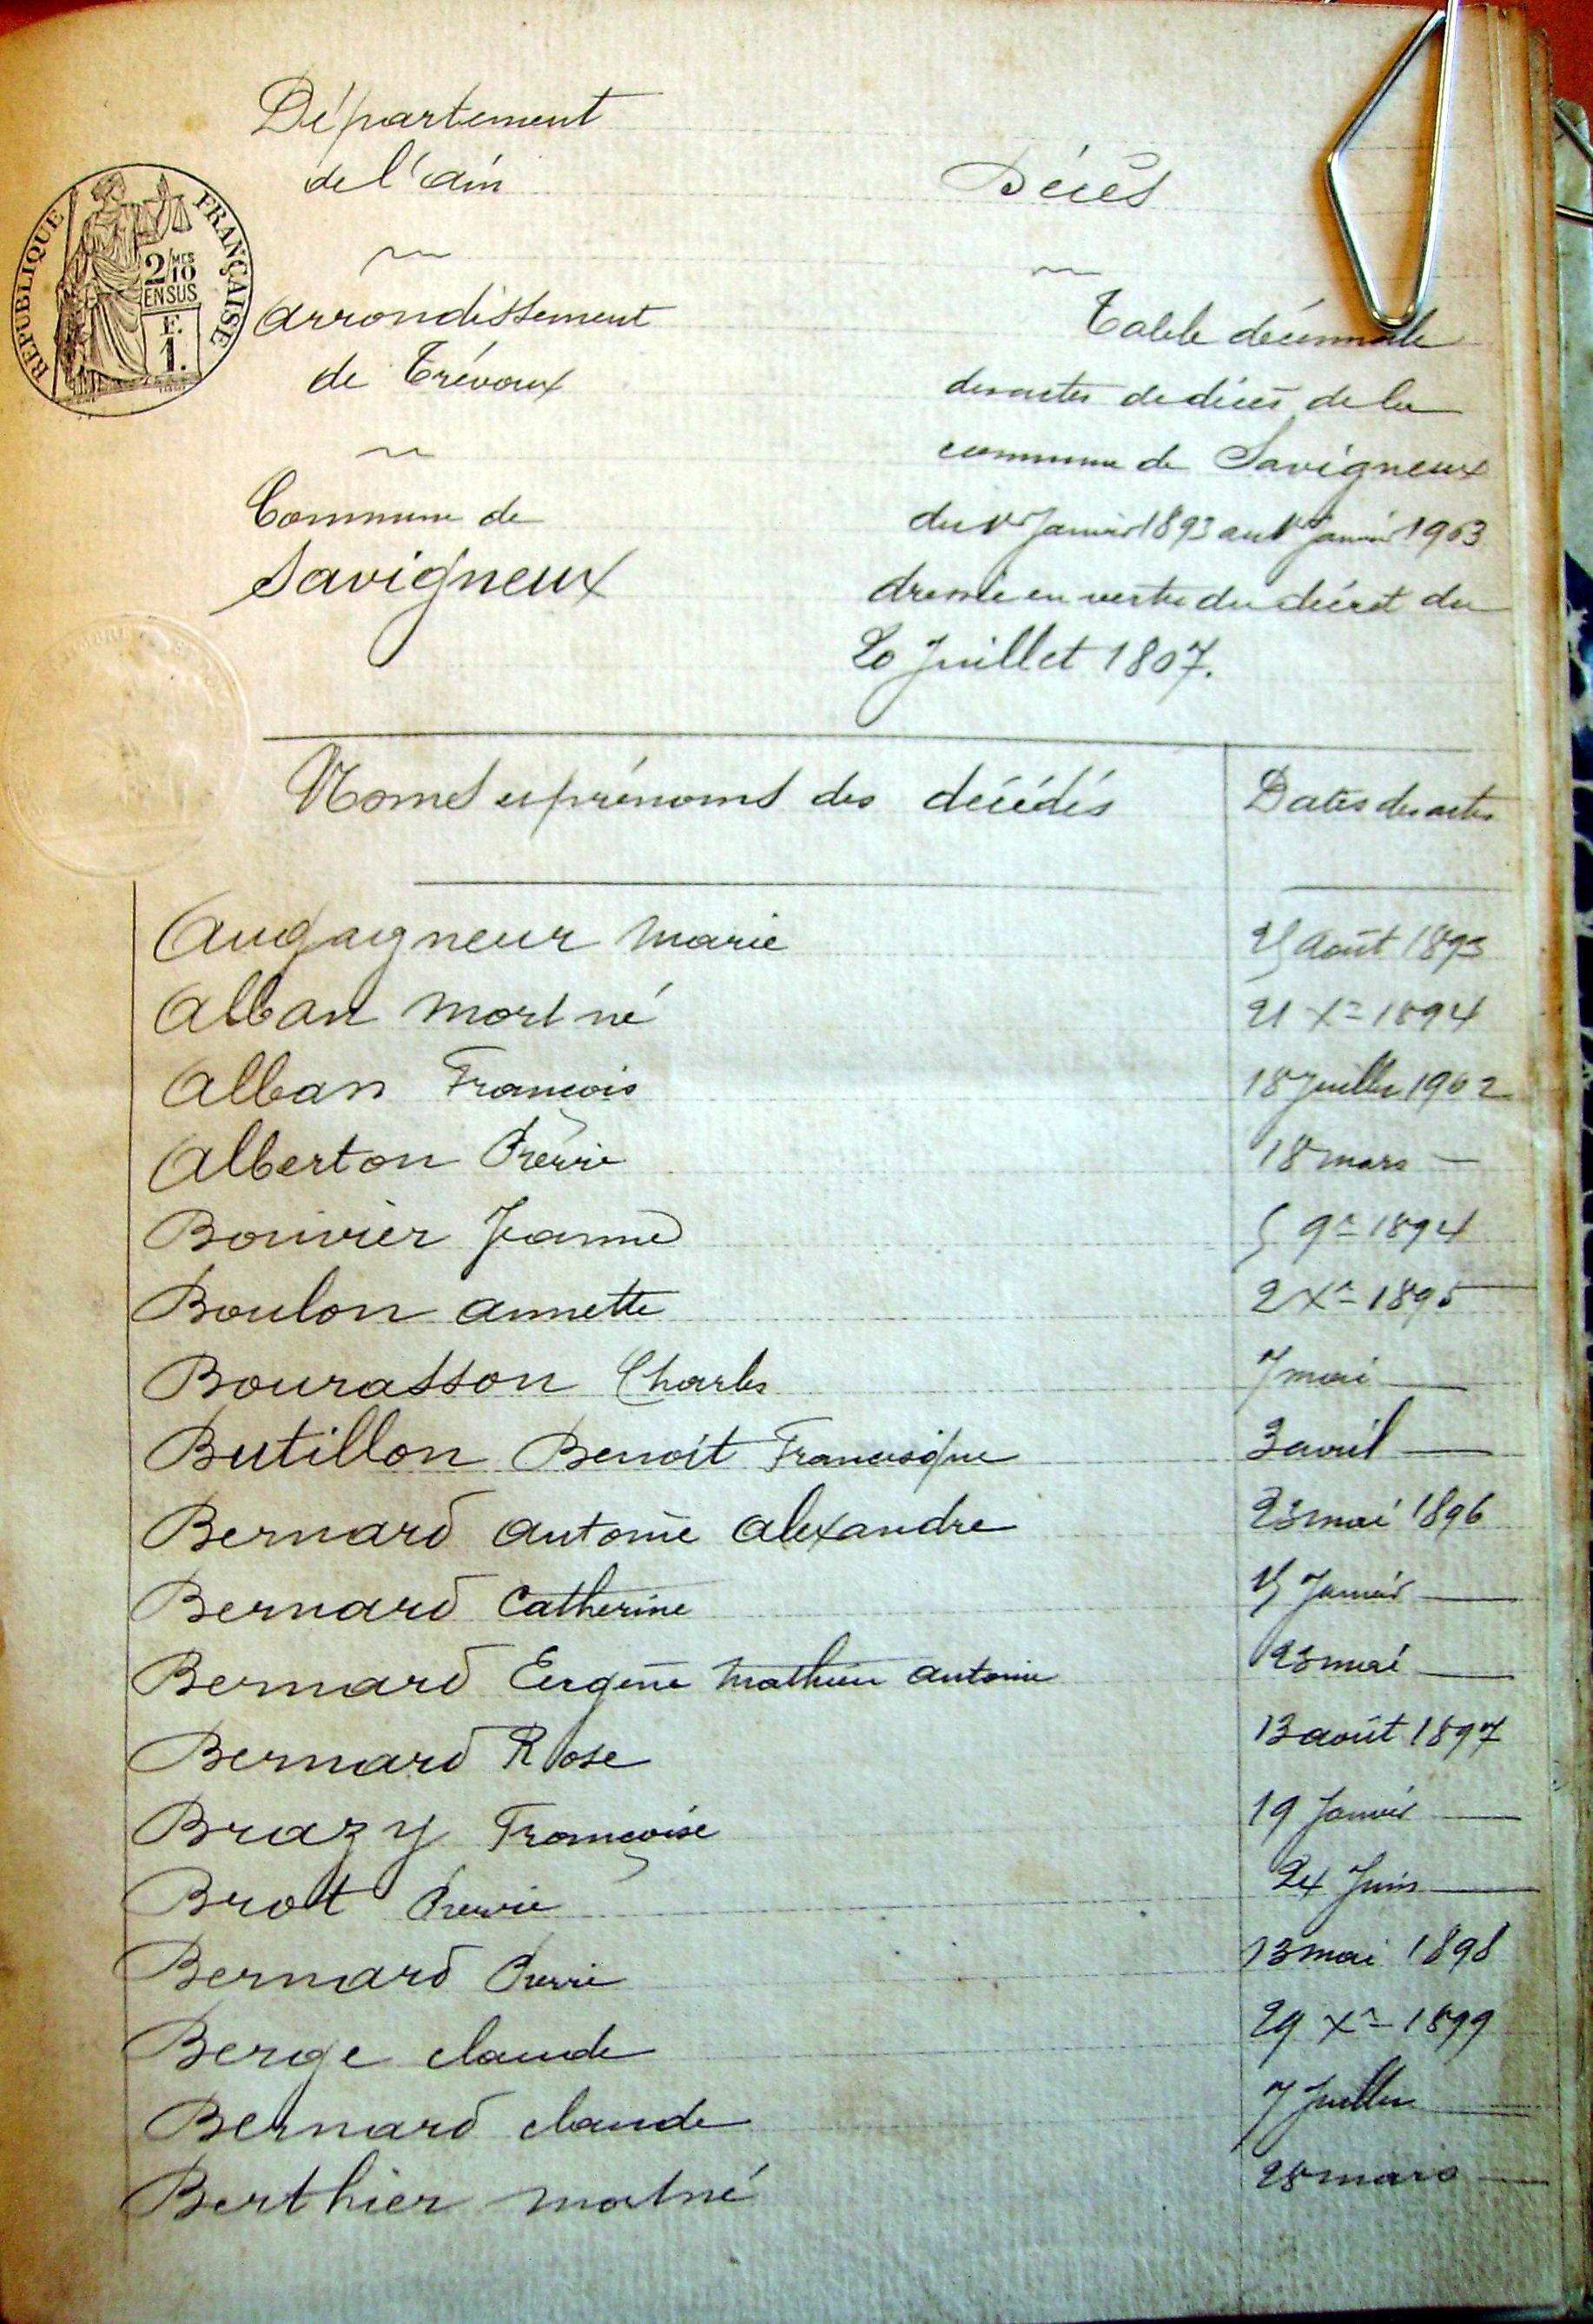 Département
de l'ain
Décès
REPUBLIQUE FRANÇAISE
2/10 MES
EN SUS
E.
1.
Arrondissement
de Trévoux
Table décennale
des actes de décès de la
commune de Savigneux
du 1er Janvier 1893 au 1er Janvier 1903
dressée en vertu du décret du
20 Juillet 1807.
Commune de
Savigneux
Noms et prénoms des décédés
Dates des actes
Augagneur Marie 25 Août 1893
Alban Mort né 21 Xre 1894
Alban François 18 Juillet 1902
Alberton Pierre 18 mars —
Bouvier Jeanne 5 9re 1894
Boulon Annette 2 Xre 1895
Bourasson Charles 7 mai —
Butillon Benoit Francisque 3 avril —
Bernard Antoine Alexandre 23 mai 1896
Bernard Catherine Janvier —
Bernard Eugène Mathieu Antoine 23 mai —
Bernard Rose 13 août 1897
Brazy Françoise 19 Janvier —
Brot Pierre 24 Juin —
Bernard Pierre 13 mai 1898
Berge Claude 29 Xre 1899
Bernard Claude 7 Juillet —
Berthier mort né 28 mars —